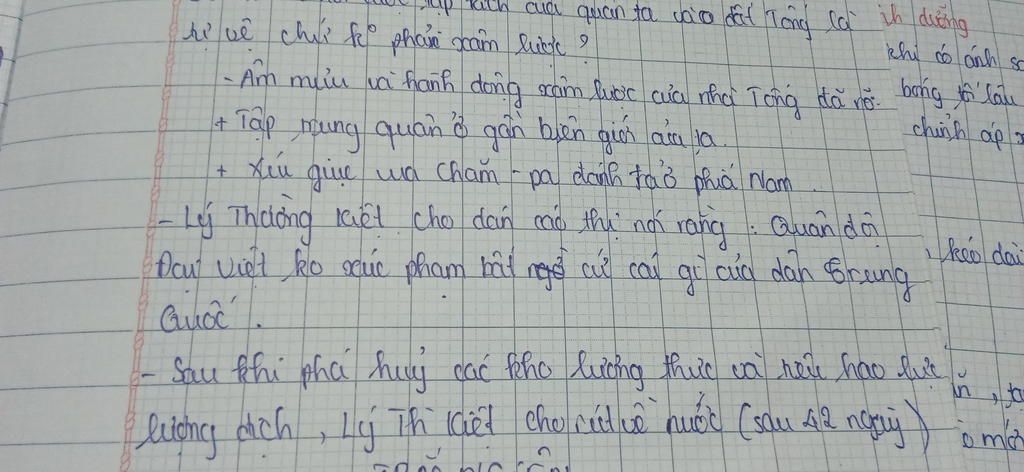 tập kích của quân ta vào đất Tống là
tự vệ chứ ko phải xâm lược ?
- Âm mưu và hành động xâm lược của nhà Tống đã rõ.
+ Tập trung quân ở gần biên giới của ta.
+ Xúi giục vua Chăm-pa đánh ta ở phía Nam.
- Lý Thường Kiệt cho dán cáo thị nói rằng : Quân đội
Đại Việt ko xúc phạm bất cứ cái gì của dân Trung
Quốc.
- Sau khi phá huỷ các kho lương thực và tiêu hao lực
lượng địch, Lý Th Kiệt cho rút về nước (sau 42 ngày)
dưỡng
khi có ánh
bóng tối
chính áp
kéo dài